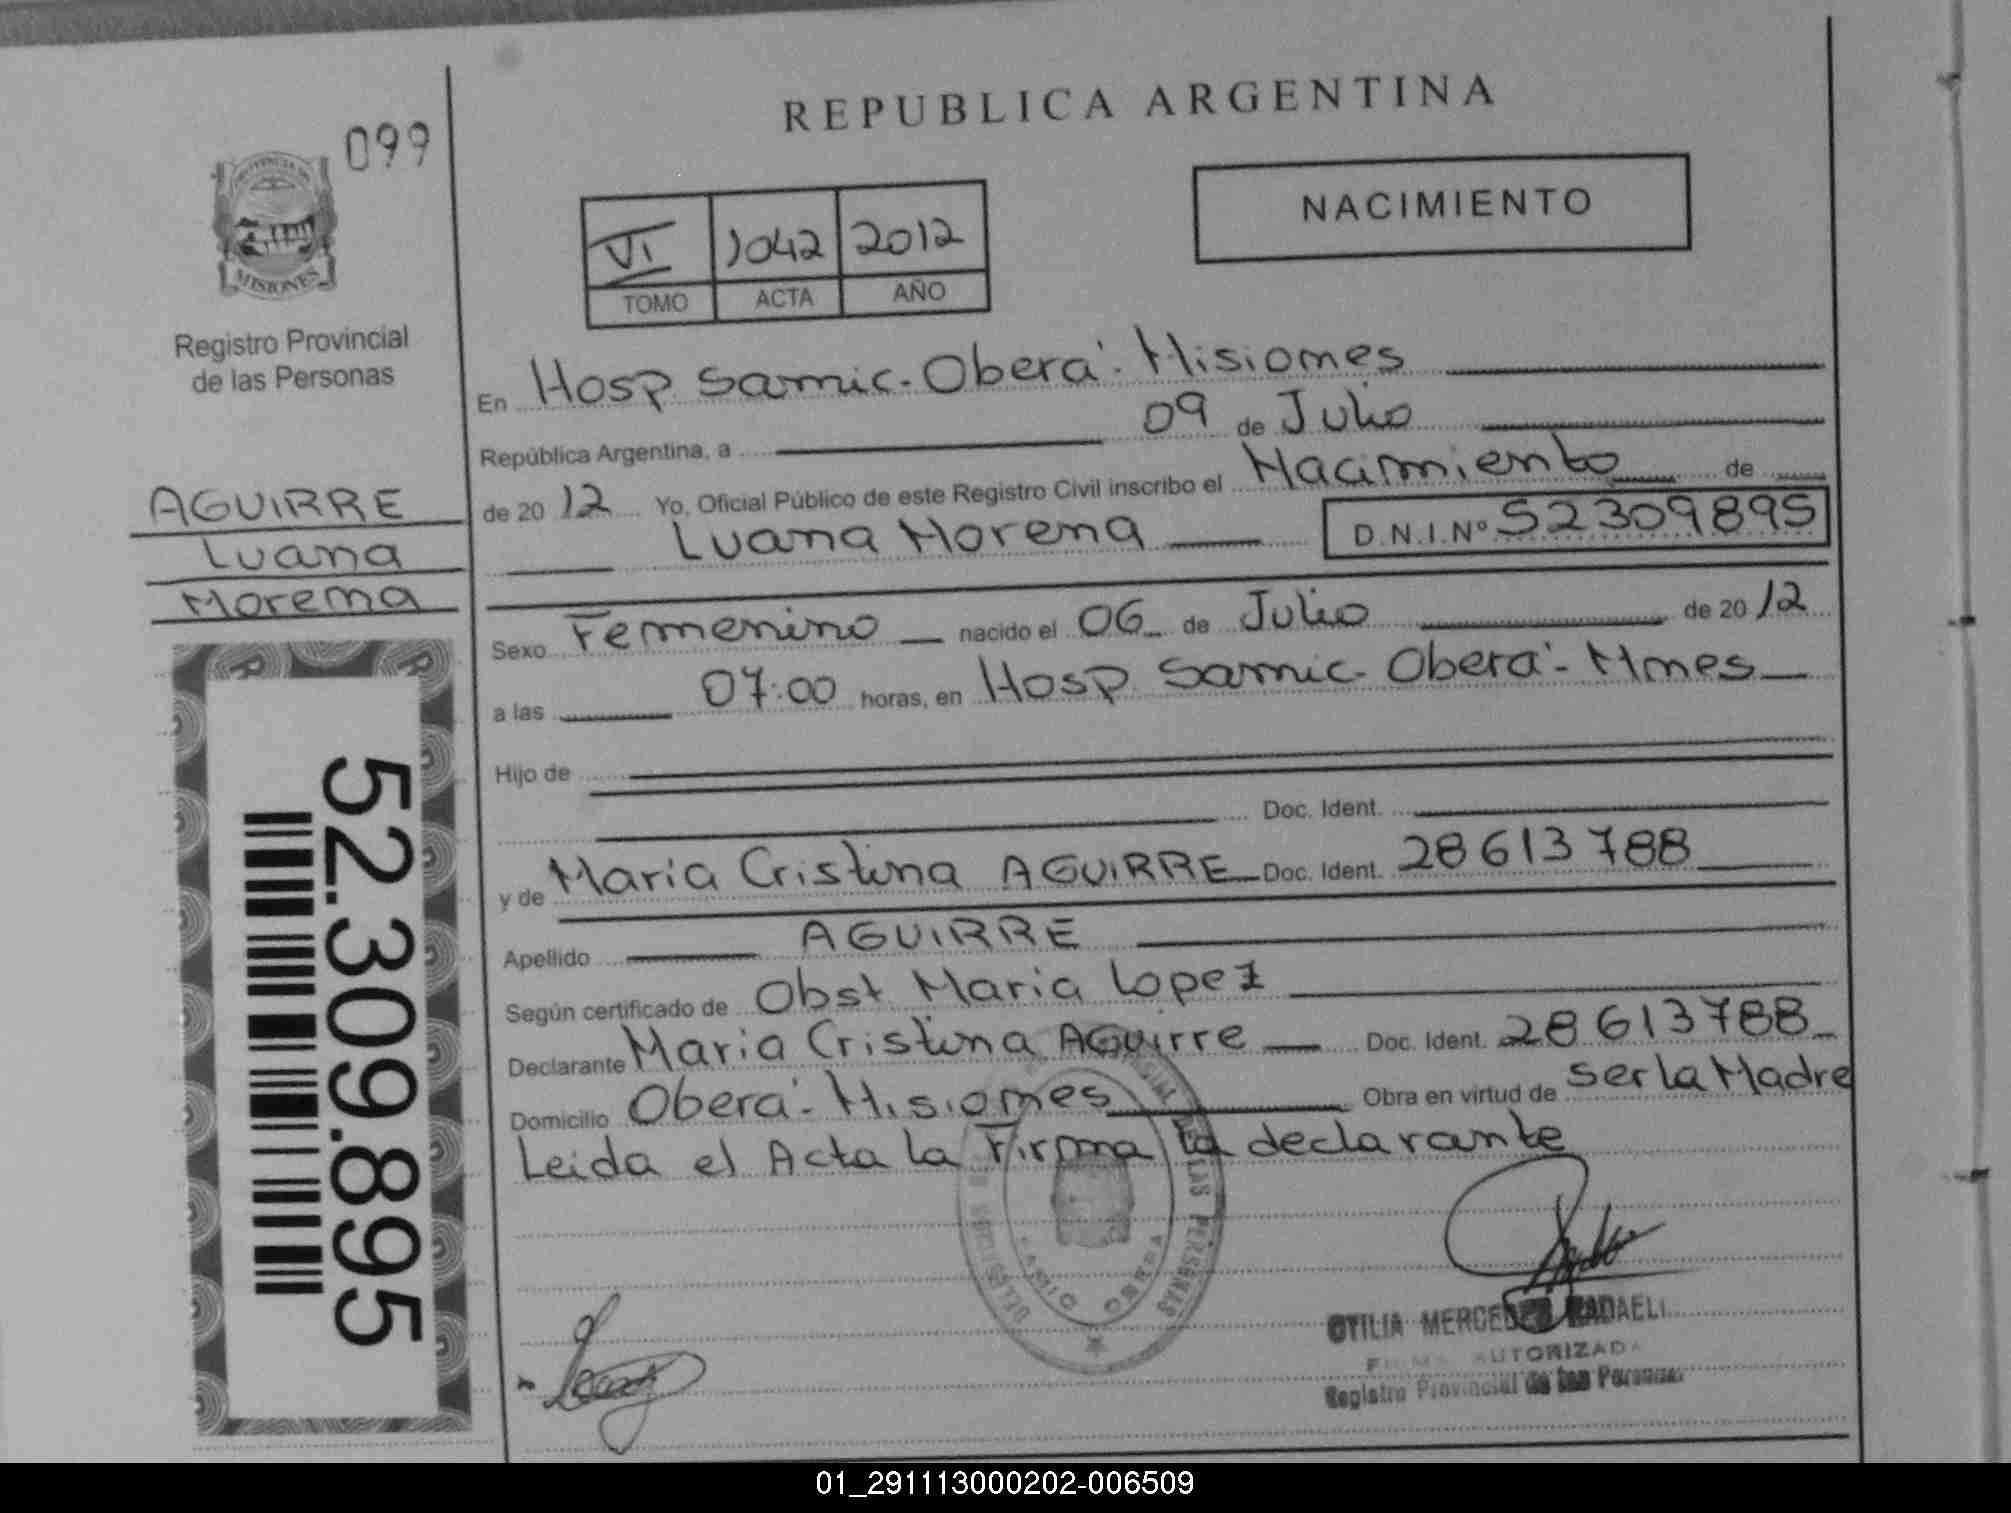 REPUBLICA ARGENTINA
099
NACIMIENTO
VI 1042 2012
TOMO ACTA AÑO
PROVINCIA DE
MISIONES
Registro Provincial
de las Personas
AGUIRRE
Luana
Morena
52.309.895
En Hosp. Samic - Oberá - Misiones
República Argentina, a 09 de Julio
de 20 12 Yo, Oficial Público de este Registro Civil inscribo el Nacimiento de
Luana Morena D.N.I.Nº 52309895
Sexo Femenino nacido el 06 de Julio de 20 12
a las 07:00 horas, en Hosp Samic - Oberá - Mnes
Hijo de
Doc. Ident.
y de Maria Cristina AGUIRRE Doc. Ident. 28613788
Apellido AGUIRRE
Según certificado de Obst Maria Lopez
Declarante Maria Cristina Aguirre Doc. Ident. 28613788
Domicilio Oberá - Misiones Obra en virtud de ser la Madre
Leida el Acta la Firma la declarante
DE LAS PERSONAS
OBERA
OTILIA MERCEDES RADAELI
FIRMA AUTORIZADA
Registro Provincial de las Personas
01_291113000202-006509